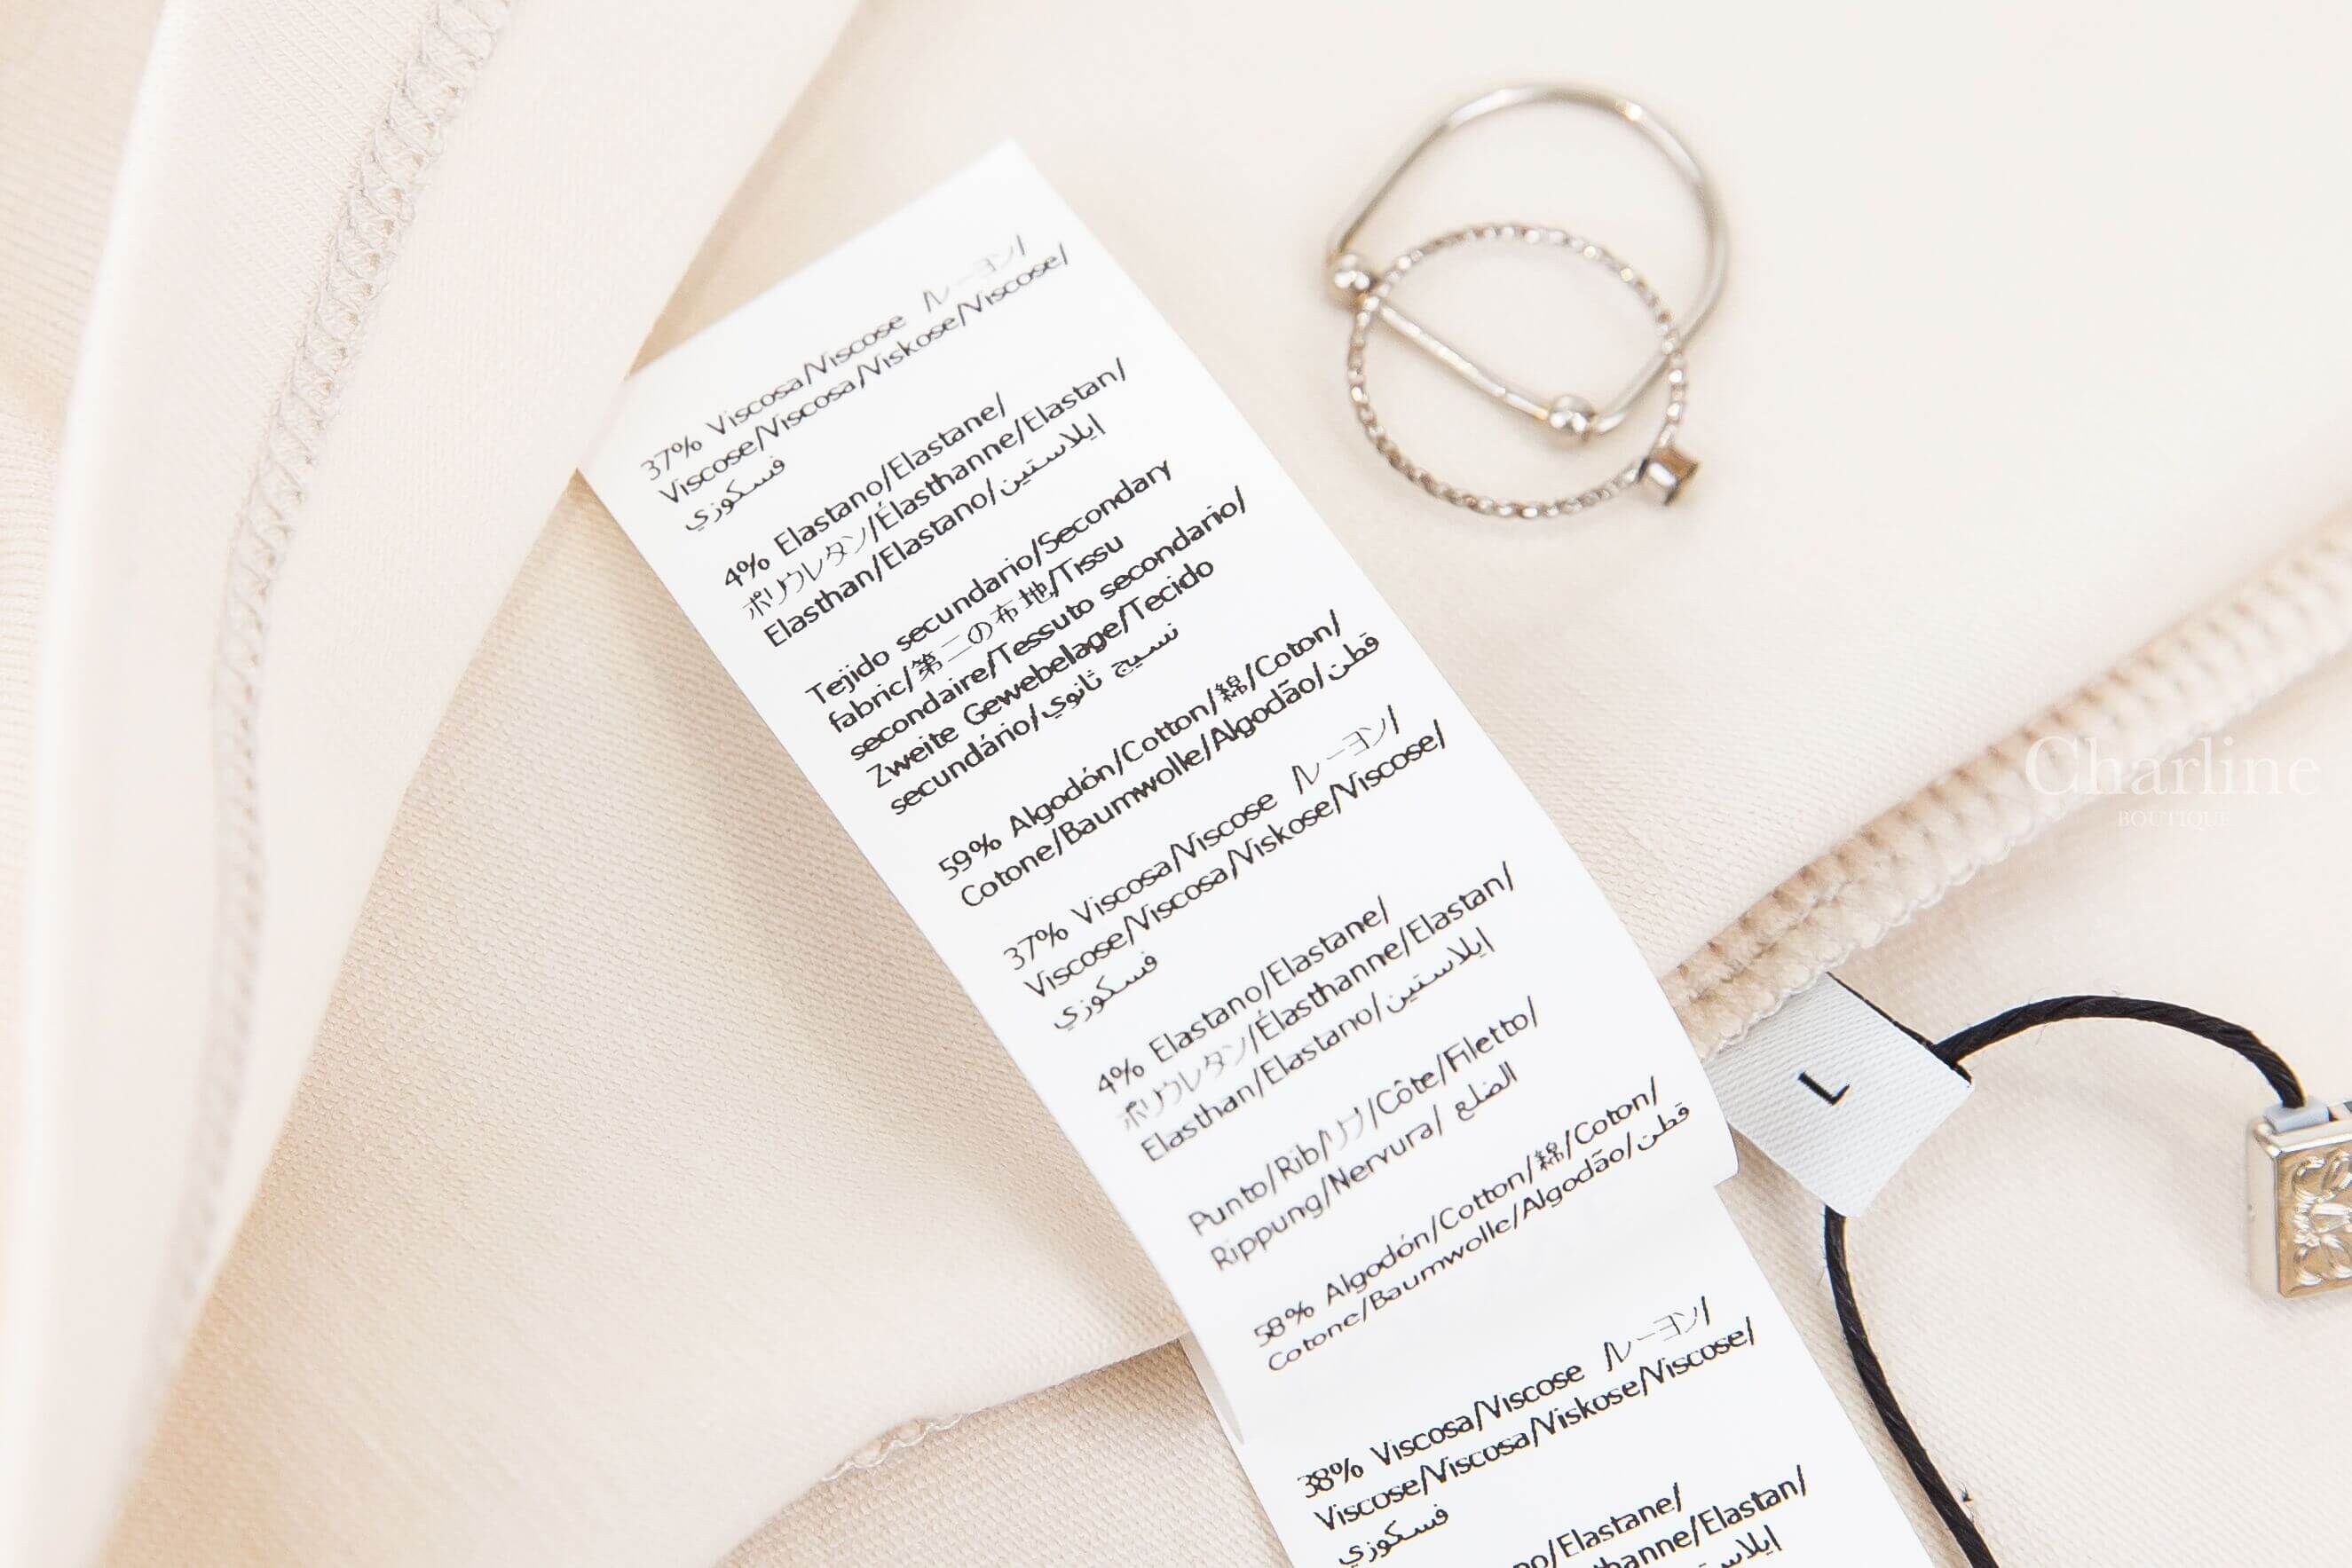 37% Viscosa/Viscose ルーヨン/
Viscose/Viscosa/Viskose/Viscose/
فسكوزي
4% Elastano/Elastane/
ポリウレタン/Élasthanne/Elastan/
Elasthan/Elastano/إيلاستين
Tejido secundario/Secondary
fabric/第二の布地/Tissu
secondaire/Tessuto secondario/
Zweite Gewebelage/Tecido
secundário/نسيج ثانوي
59% Algodón/Cotton/綿/Coton/
Cotone/Baumwolle/Algodão/قطن
37% Viscosa/Viscose ルーヨン/
Viscose/Viscosa/Viskose/Viscose/
فسكوزي
4% Elastano/Elastane/
ポリウレタン/Élasthanne/Elastan/
Elasthan/Elastano/إيلاستين
Punto/Rib/リブ/Côte/Filetto/
Rippung/Nervura/ الضلع
58% Algodón/Cotton/綿/Coton/
Cotone/Baumwolle/Algodão/قطن
38% Viscosa/Viscose ルーヨン/
Viscose/Viscosa/Viskose/Viscose/
فسكوزي
/Elastane/
/Elastan/
L
Charline
BOUTIQUE